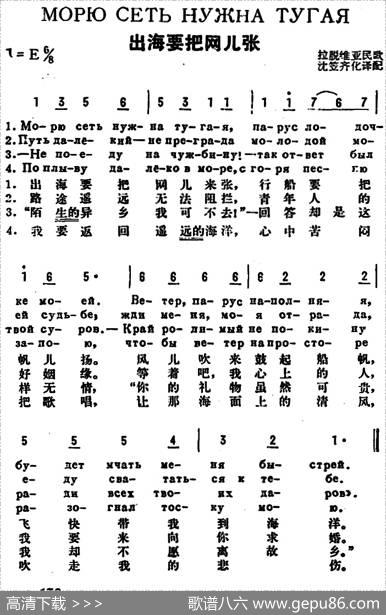 МОРЮ СЕТЬ НУЖНА ТУГАЯ
出海要把网儿张
1=E 6/8
拉脱维亚民歌
沈笠齐化译配
1 3 5 6 5 3 5 1 1 1 7 6 7
1. Мо-рю сеть нуж-на ту-га-я, па-рус ло-доч-
2. Путь да-ле-кий—не пре-гра-да мо-ло-дой мо-
3. —Не по-е-ду на чуж-би-ну!—так от-вет был
4. По плы-ву да-ле-ко в мо-ре, с го-ря пес-ню
1. 出海要把网儿来张,行船要把
2. 路途遥远无法阻拦,青年人的
3. "陌生的异乡我可不去!"一回答却是这
4. 我要返回遥远的海洋,心中苦闷
1 6 5· 6 6 6 6 6 2 2 2
ке мо-ей. Ве-тер, па-рус на-пол-ня-я,
ей судь-бе, жди ме-ня, мо-я от-ра-да,
твой су-ров.—Край ро-ли-мый не по-ки-ну
за-по-ю, что-бы ве-тер на про-сто-ре
帆儿扬。风儿吹来鼓起船帆,
好姻缘。等着吧,我心上的人,
样无情,"你的礼物虽然可贵,
把歌唱,让那海面上的清风,
5 5 5 4 3 2 1·
бу-дет мчать ме-ня бы-стрей.
е-ду сва-тать-ся к те-бе.
ра-ди всех тво-их да-ров».
ра-зо-гнал тос-ку мо-ю.
飞快带我到海洋。
我要来向你求婚。
我却不愿离故乡。"
吹走我的悲伤。
高清下载 > 歌谱八六 www.gepu86.com